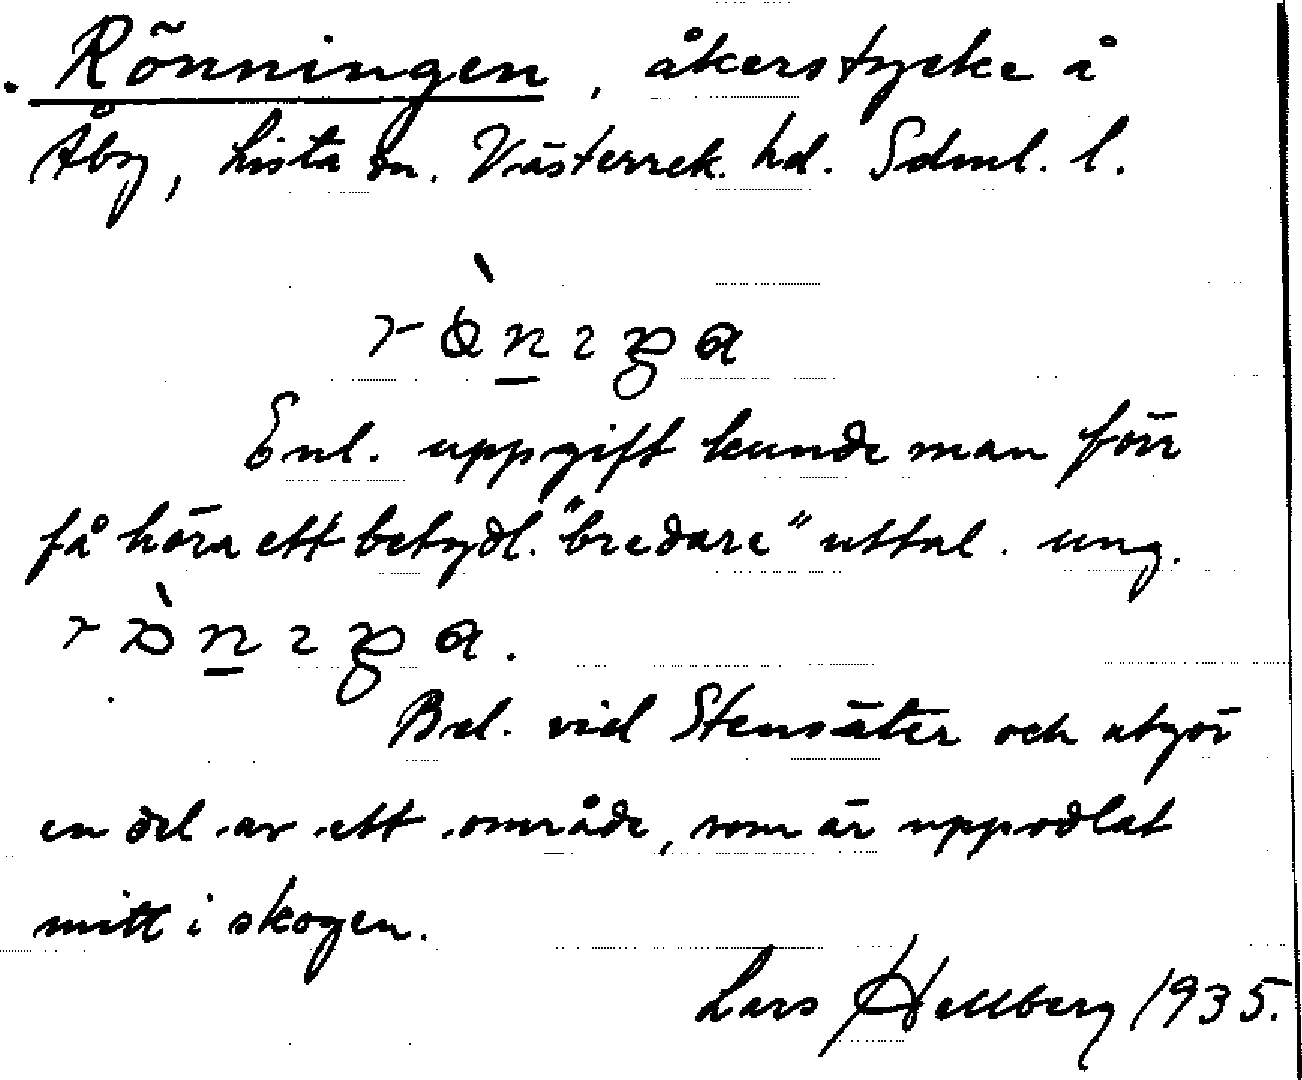 Rönningen, åkerstycke å
Åby, Lista sn. Västerrek. hd. Sdml. l.
Enl. uppgift kunde man förr
få höra ett betydl. "bredare" uttal. ung.
Bel. vid Stensäter och utgör
en del av ett område, som är uppodlat
mitt i skogen.
Lars Hellberg 1935.